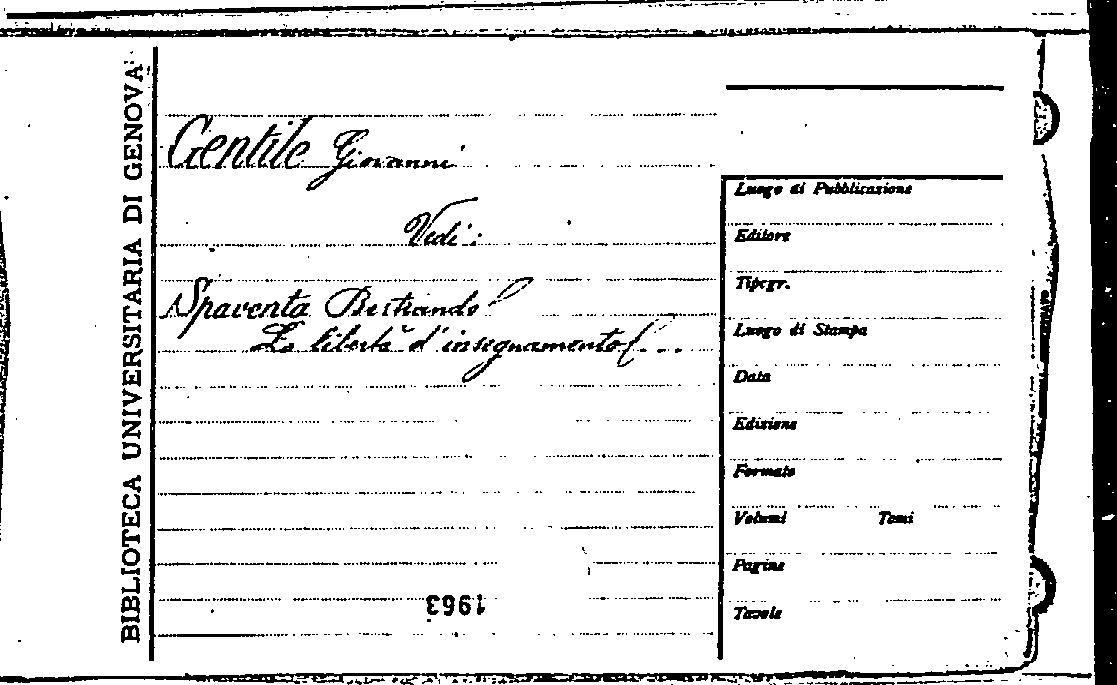 BIBLIOTECA UNIVERSITARIA DI GENOVA
Gentile Giovanni
Vedi:
Spaventa Bertrando
La libertà d'insegnamento (...
1963
Luogo di Pubblicazione
Editore
Tipogr.
Luogo di Stampa
Data
Edizione
Formato
Volumi Tomi
Pagine
Tavole